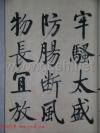 牢騷太盛
防腸斷風
物長宜放